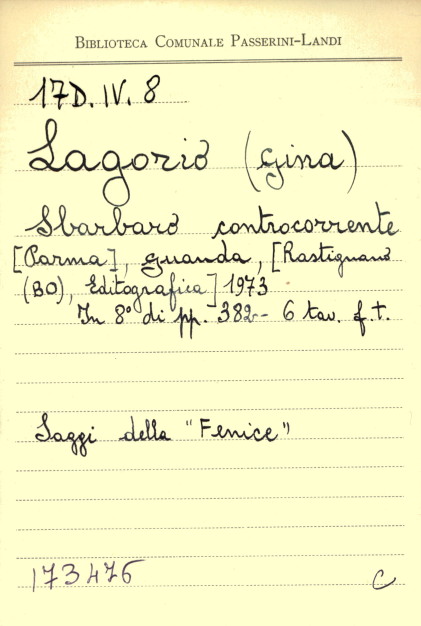 BIBLIOTECA COMUNALE PASSERINI-LANDI
17D. IV. 8
Lagorio (Gina)
Sbarbaro controcorrente
[Parma], Guanda, [Rastignano
(BO), Editografica] 1973
In 8° di pp. 382 - 6 tav. f.t.
Saggi della "Fenice"
173476
C